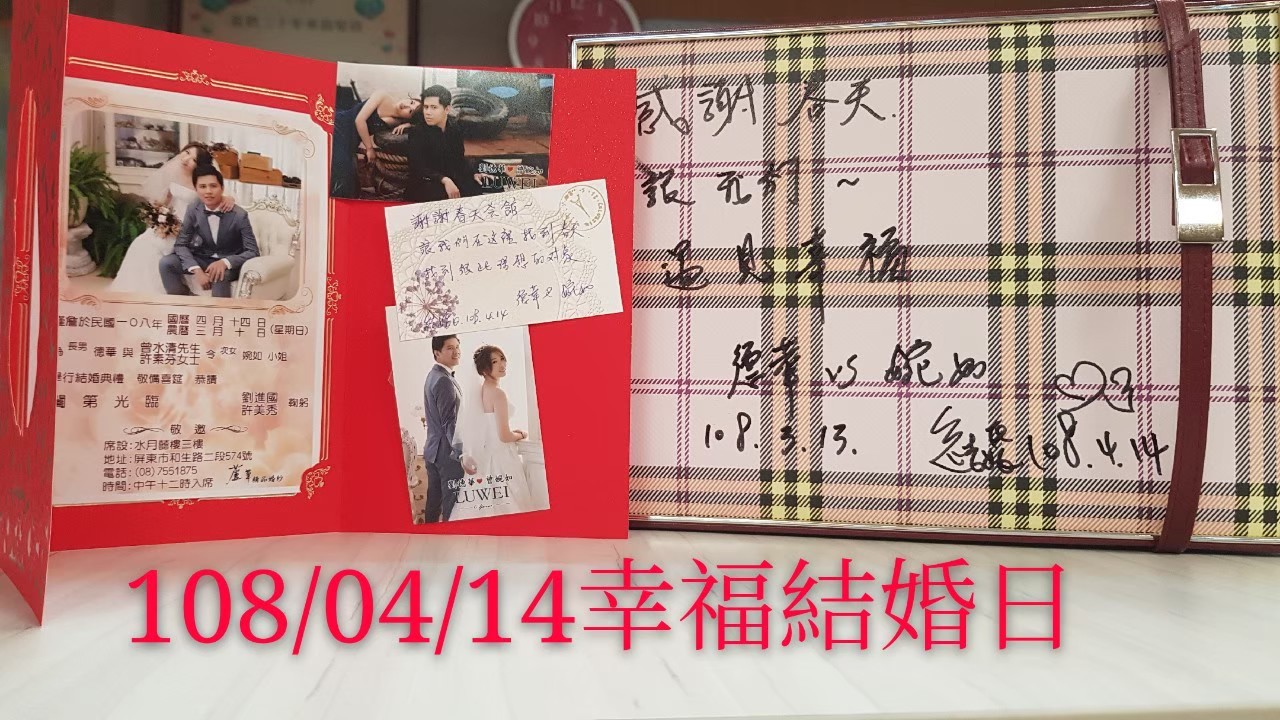 謹詹於民國一〇八年 國曆 四月十四日 農曆 三月十日 (星期日)
為 長男 德華 與 曾水清先生 許素芬女士 令 次女 婉如 小姐
舉行結婚典禮 敬備喜筵 恭請
闔第光臨
劉進國
許美秀 鞠躬
敬邀
席設:水月囍樓三樓
地址:屏東市和生路二段574號
電話:(08)7551875
時間:中午十二時入席
劉德華♥曾婉如
LUWEI
謝謝春天會館~
讓我們在這裡找到
找到彼此理想的對象
德華 & 婉如
108.4.14
劉德華♥曾婉如
LUWEI
感謝春天
讓我們~
遇見幸福
德華 vs 婉如
108.3.13.
108.4.14
108/04/14幸福結婚日